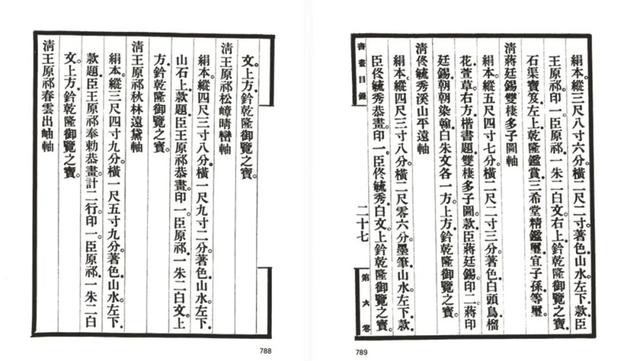 絹本。縱三尺八寸六分。橫二尺二寸。著色山水。左下款臣
王原祁。印一。臣原祁。一朱二白文。右上鈐乾隆御覽之寶。
石渠寶笈。左上乾隆鑑賞。三希堂精鑑璽。宜子孫等璽。
清蔣廷錫雙棲多子圖軸
絹本。縱五尺四寸七分。橫二尺二寸三分。著色白頭鳥榴
花萱草。右方楷書題雙棲多子圖。款臣蔣廷錫。印二。蔣印
廷錫。朝朝染翰。白朱文各一。方上方鈐乾隆御覽之寶。
清佟毓秀溪山平遠軸
絹本。縱四尺三寸八分。橫二尺零六分。墨筆山水。左下款
臣佟毓秀恭畫。印一。臣佟毓秀。白文。上方鈐乾隆御覽之寶。
書畫目錄
二十七
789
文。上方鈐乾隆御覽之寶。
清王原祁松嶂晴巒軸
絹本。縱四尺三寸八分。橫一尺九寸二分。著色山水。左下
山石上。款題臣王原祁恭畫。印一。臣原祁。一朱二白文。上
方鈐乾隆御覽之寶。
清王原祁秋林遠黛軸
絹本。縱三尺四寸九分。橫一尺五寸九分。著色山水。左下
款題臣王原祁奉勅恭畫。計二行。印一。臣原祁。一朱二白
文。上方鈐乾隆御覽之寶。
清王原祁春雲出岫軸
788